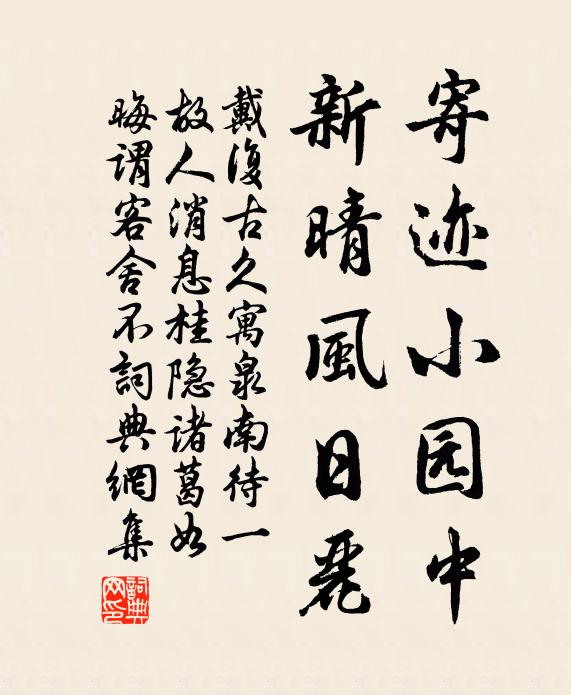 寄迹小园中
新晴風日麗
戴復古久寓泉南待一
故人消息桂隐诸葛如
晦謂客舍不詞典網集
詞典網印